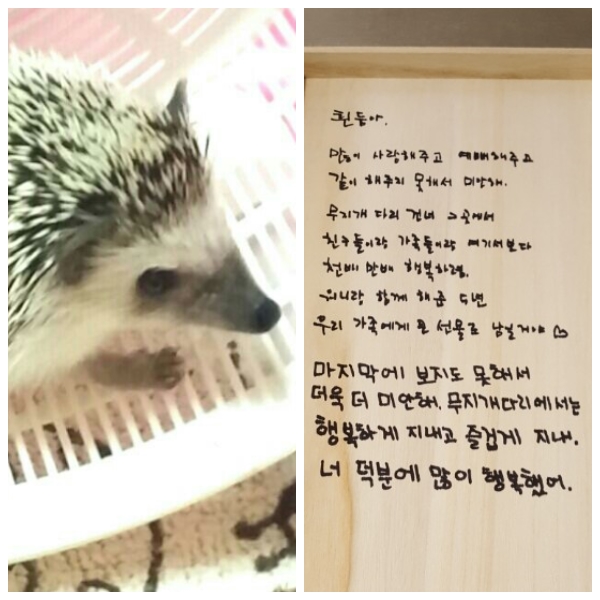 흰둥아.
많이 사랑해주고 예뻐해주고
같이 해주지 못해서 미안해.
무지개 다리 건너 그곳에서
친구들이랑 가족들이랑 여기서보다
천배 만배 행복하렴.
우리랑 함께 해준 5년
우리 가족에게 큰 선물로 남을거야 ♡
마지막에 보지도 못해서
더욱 더 미안해. 무지개다리에서는
행복하게 지내고 즐겁게 지내.
너 덕분에 많이 행복했어.